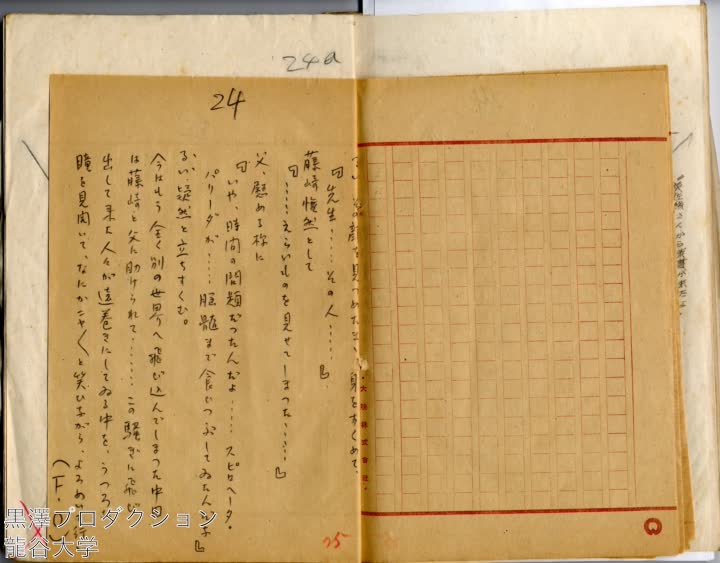 24a
24
るい、その顔を見つめたまゝ、身をすくめて、
「先生……その人……」
藤崎慎然として
「……えらいものを見せてしまつた……」
父、慰める様に
「いや、時間の問題だつたんだよ……スピロヘータ・
パリーダが……脳髄まで食ひつぶしてゐたんだよ」
るい、凝然と立ちすくむ。
今はもう全く別の世界へ飛び込んでしまつた中田
は藤崎と父に助けられて……この騒ぎに飛び
出して来た人々が遠巻きにしてゐる中を、うつろな
瞳を見開いて、なにかニヤ〱と笑ひながら、よろめい行
(F・O)
大映株式会社
25
黒澤プロダクション
龍谷大学